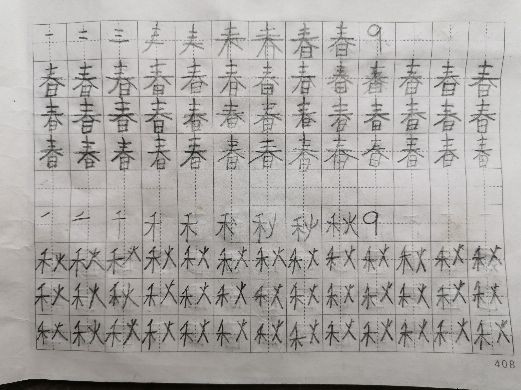 一 二 三 春 春 9
春 春 春 春 春 春 春 春 春 春 春 春 春
春 春 春 春 春 春 春 春 春 春 春 春 春
春 春 春 春 春 春 春 春 春 春 春 春 春
千 禾 秋 9
秋 秋 秋 秋 秋 秋 秋 秋 秋 秋 秋 秋 秋
秋 秋 秋 秋 秋 秋 秋 秋 秋 秋 秋 秋 秋
秋 秋 秋 秋 秋 秋 秋 秋 秋 秋 秋 秋 秋
408